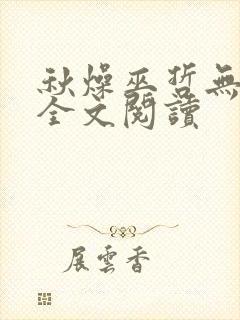 秋燥巫哲無
全文閱讀
展雲香